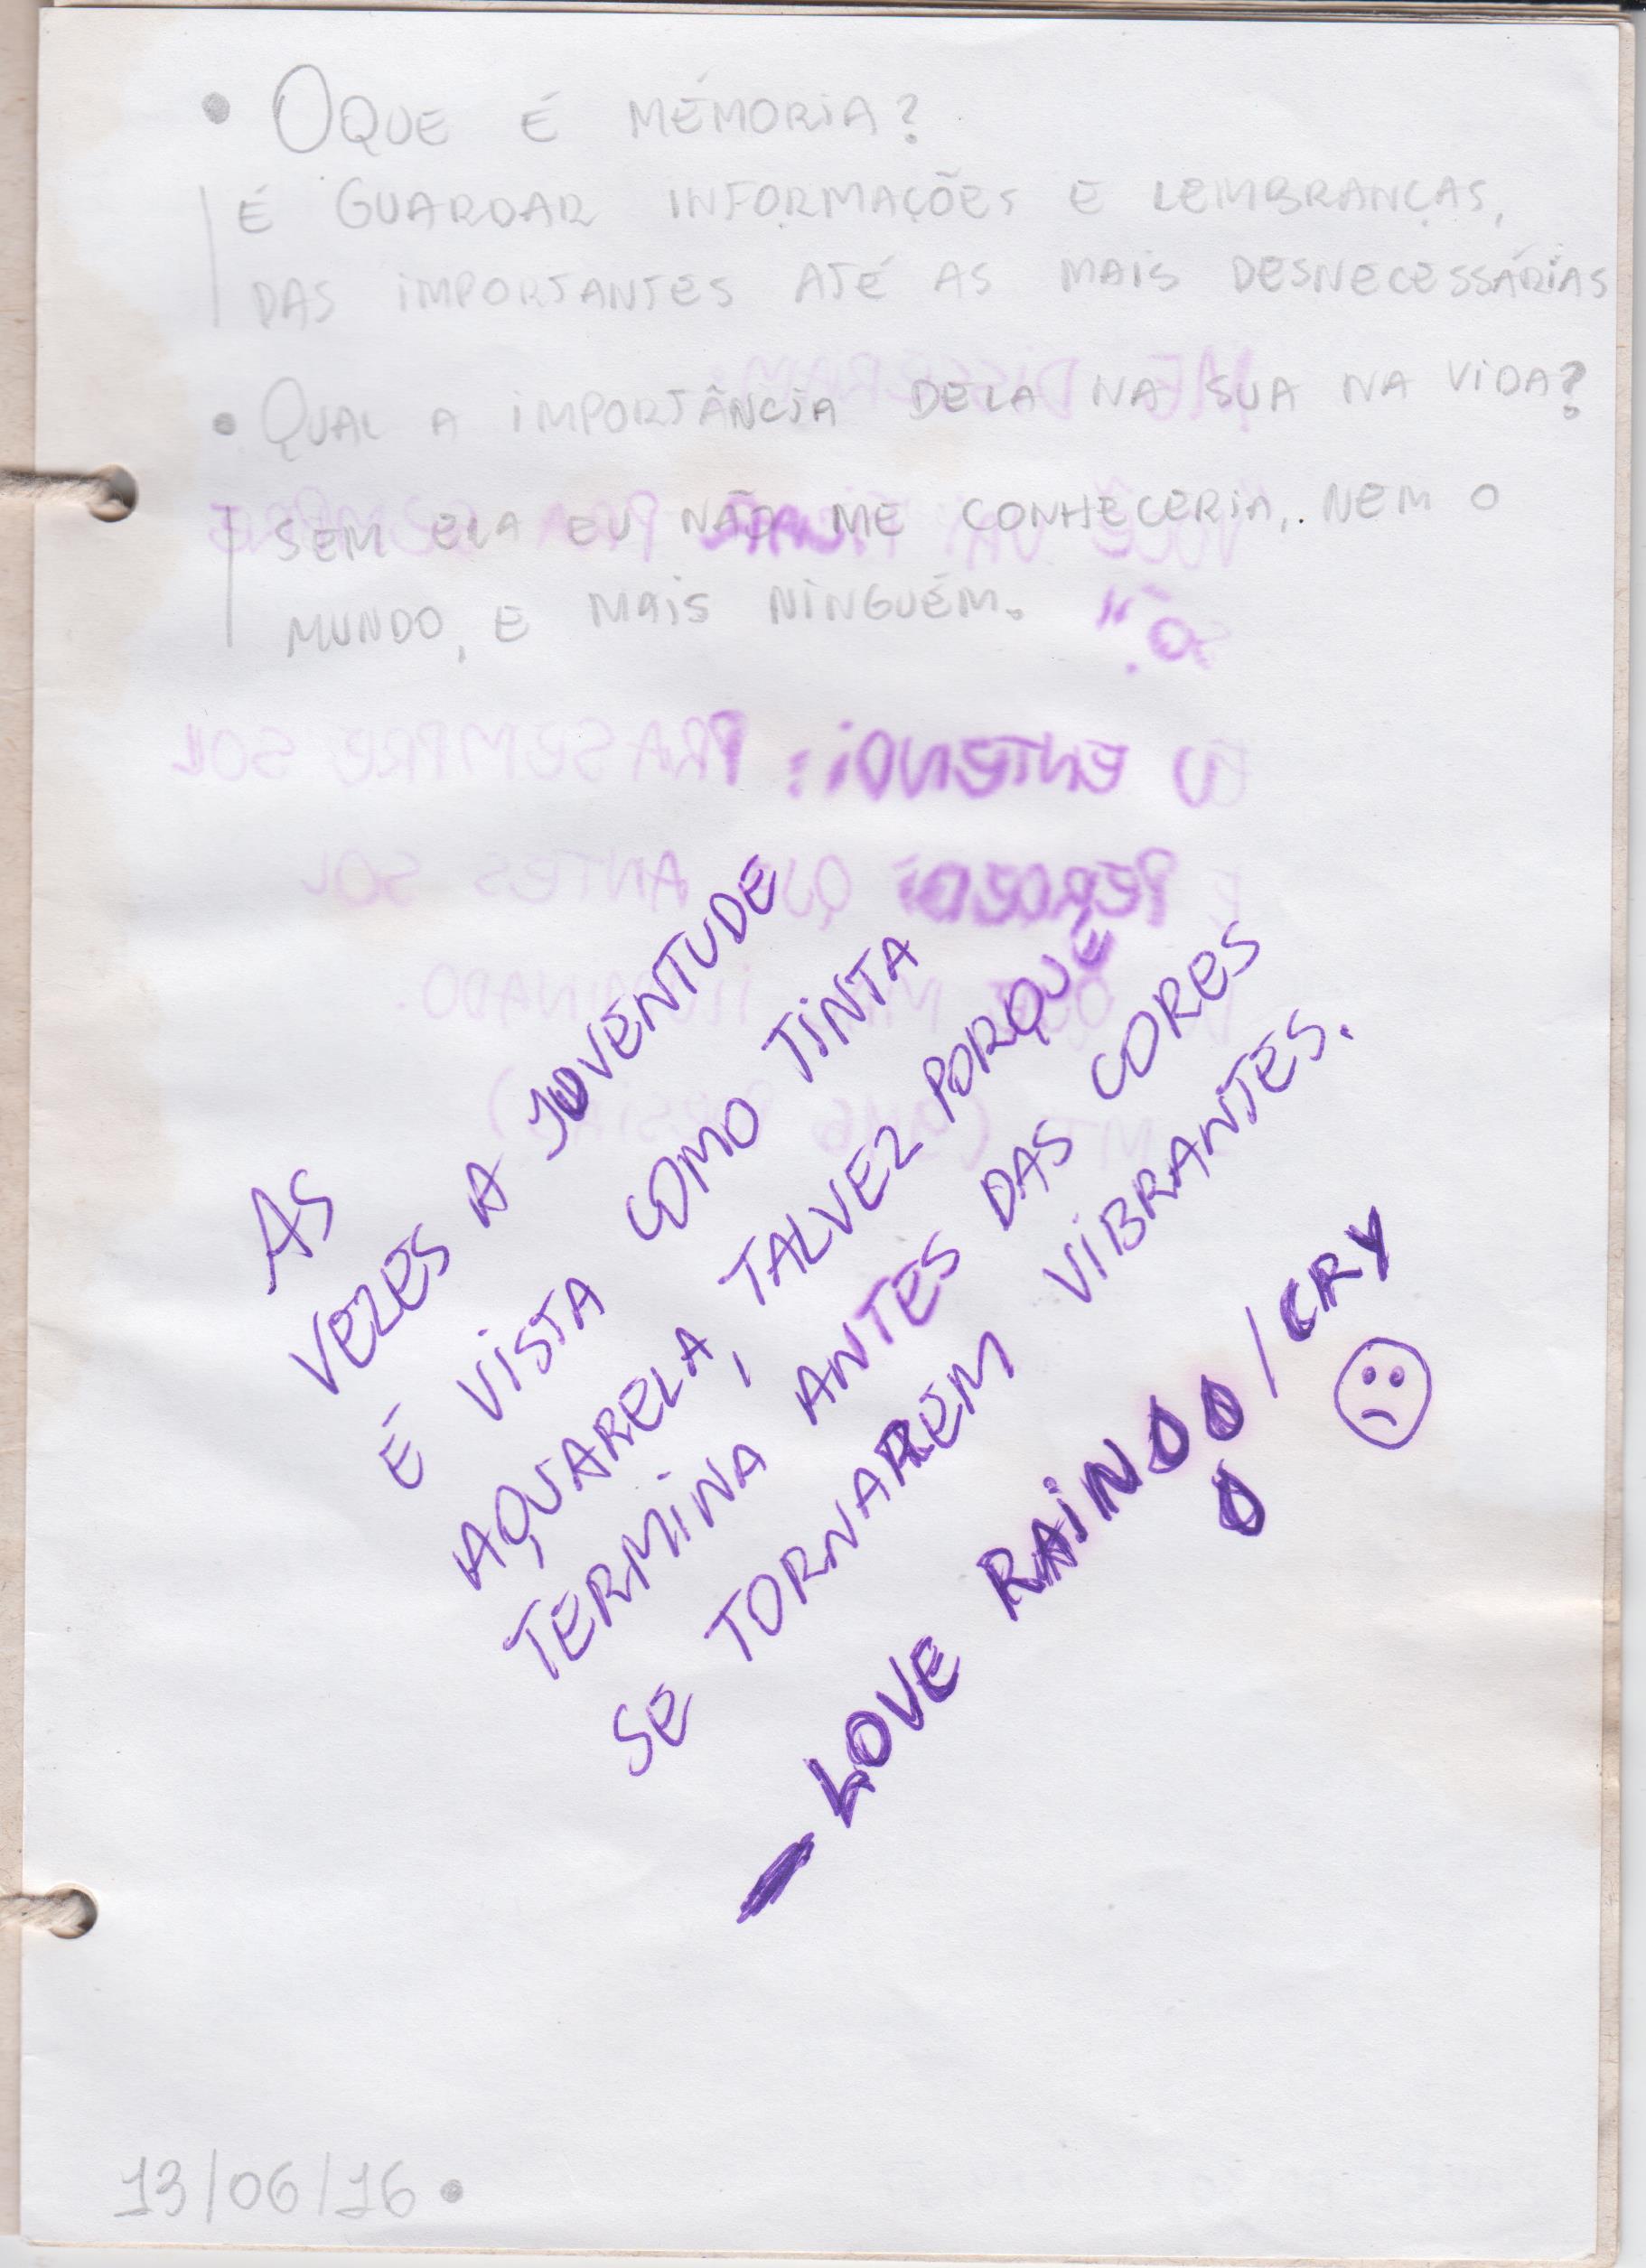 • OQUE É MÉMORIA?
É GUARDAR INFORMAÇÕES E LEMBRANÇAS,
DAS IMPORTANTES ATÉ AS MAIS DESNECESSÁRIAS
• QUAL A IMPORTÂNCIA DELA NA SUA NA VIDA?
SEM ELA EU NÃO ME CONHECERIA, NEM O
MUNDO, E MAIS NINGUÉM.
AS
VEZES A JUVENTUDE
É VISTA COMO TINTA
AQUARELA, TALVEZ PORQUE
TERMINA ANTES DAS CORES
SE TORNAREM VIBRANTES.
— LOVE RAIN / CRY
13/06/16 •